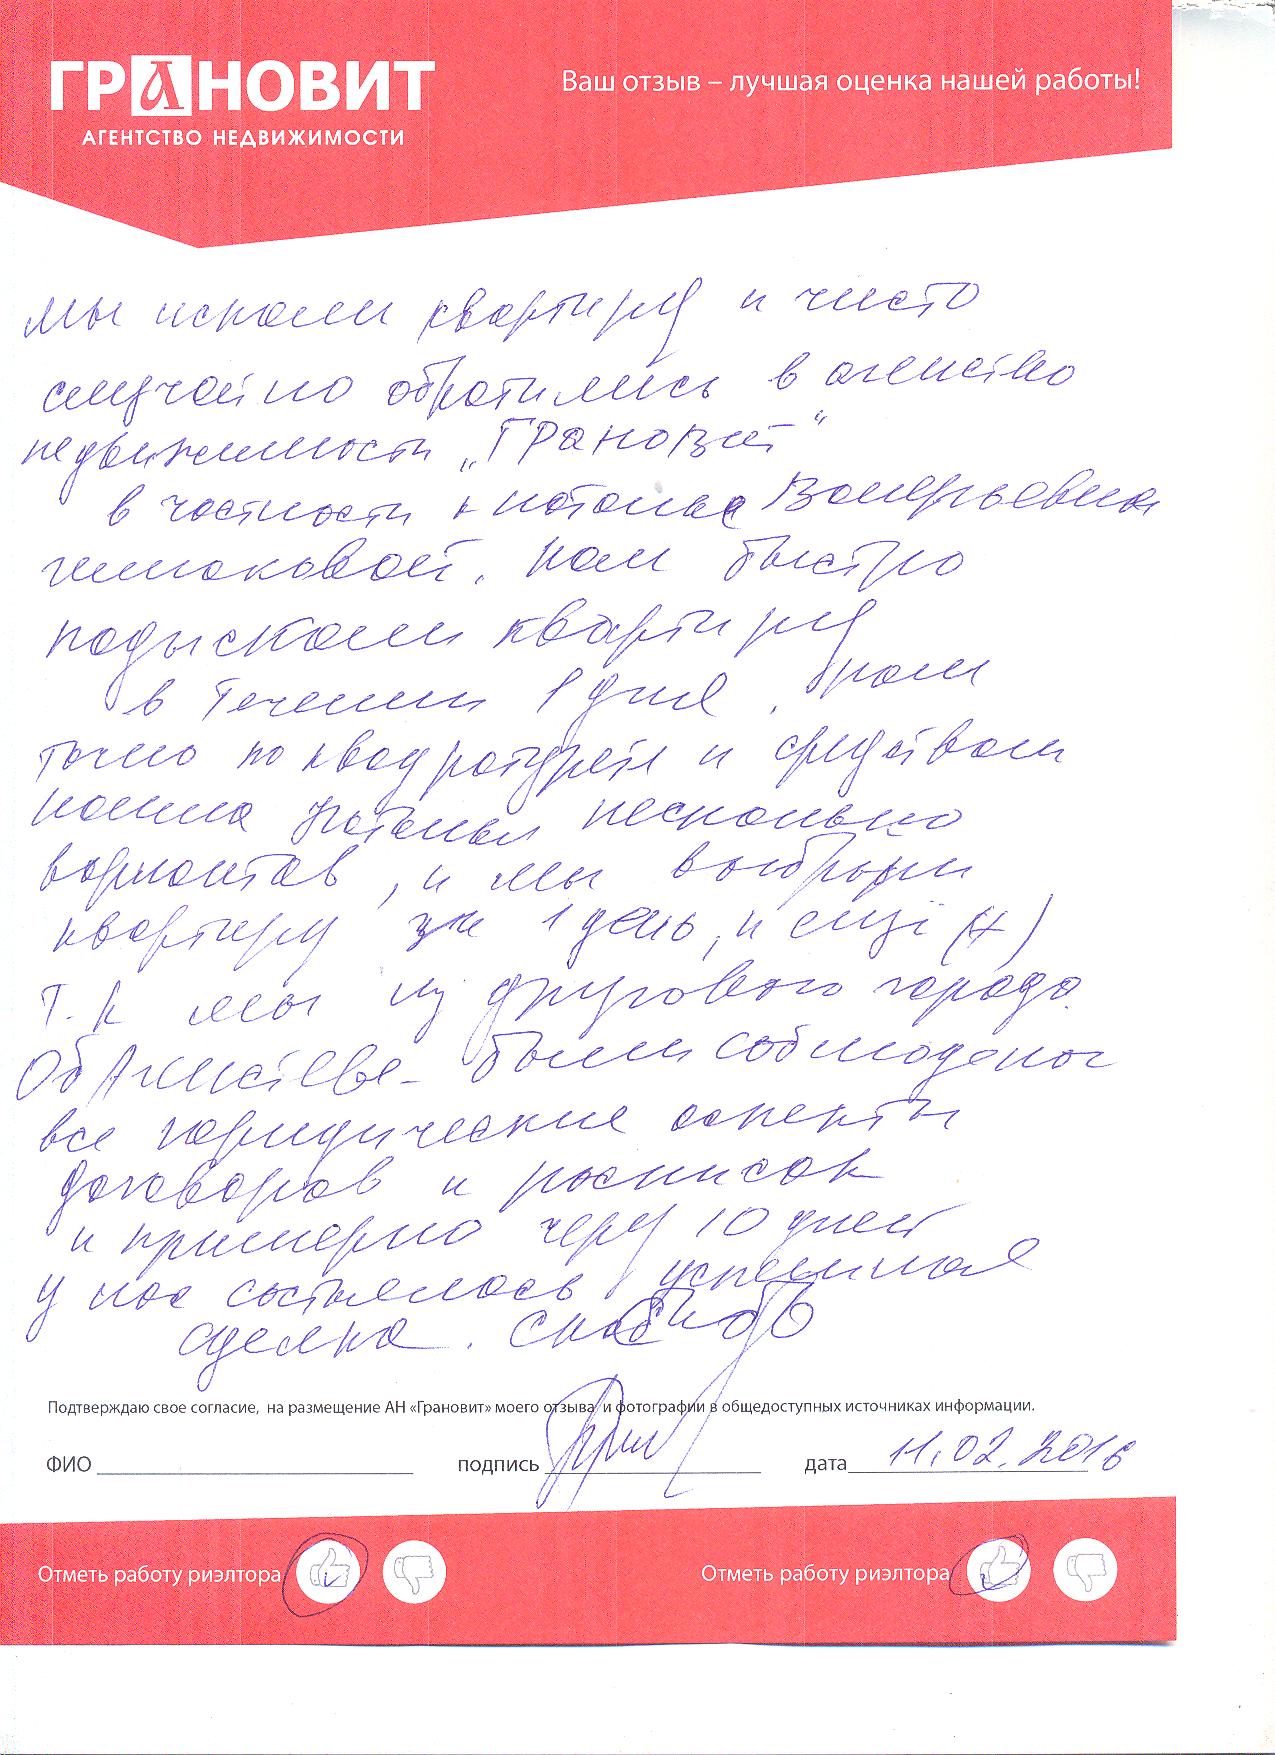 ГРАНОВИТ
АГЕНТСТВО НЕДВИЖИМОСТИ
Ваш отзыв – лучшая оценка нашей работы!
Мы искали квартиру и чисто
случайно обратились в агенство
недвижимости „Грановит“
в частности к Наталье Валерьевне
. Нам быстро
подыскали квартиру
в течении 1 дня.
точно по квадратуре и средствам
нашла Наталья несколько
вариантов, и мы выбрали
квартиру за 1 день, и ещё (+)
т.к мы из другового города.
Об Агенстеве - были соблюдены
все юридические аспекты
договоров и расписок
и примерно через 10 дней
у нас состоялось успешная
сделка. Спасибо
Подтверждаю свое согласие, на размещение АН «Грановит» моего отзыва и фотографии в общедоступных источниках информации.
ФИО подпись дата 11.02.2016
Отметь работу риэлтора Отметь работу риэлтора